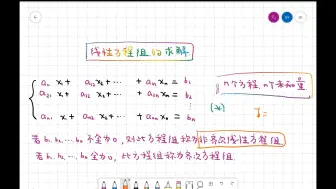 线性方程组的求解
a₁₁ x₁ + a₁₂ x₂ + ⋯ + a₁ₙ xₙ = b₁
a₂₁ x₁ + a₂₂ x₂ + ⋯ + a₂ₙ xₙ = b₂
n个方程, n个未知量
⋮ ⋮ ⋮ ⋮
(*)
aₙ₁ x₁ + aₙ₂ x₂ + ⋯ + aₙₙ xₙ = bₙ
若 b₁, b₂, ⋯, bₙ 不全为0, 则此方程组称为非齐次线性方程组
若 b₁, b₂, ⋯, bₙ 全为0, 此方程组称为齐次方程组